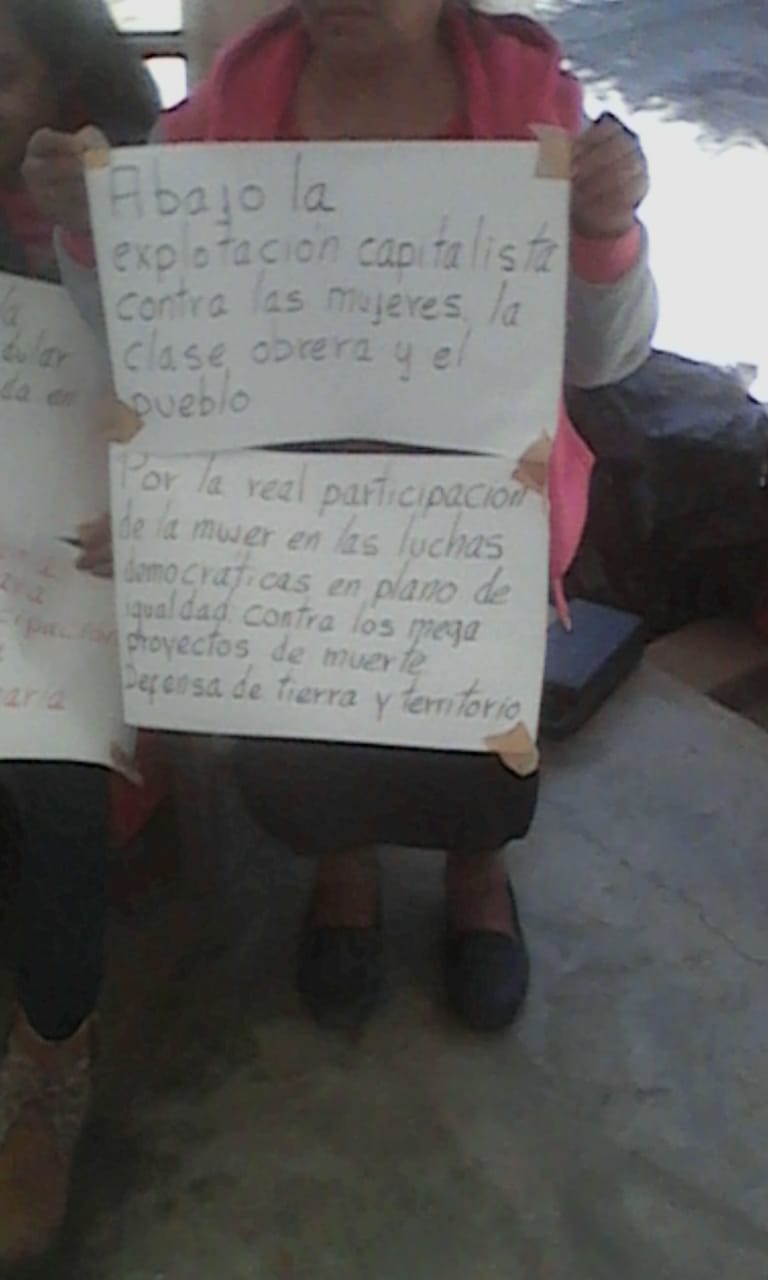 Abajo la
explotación capitalista
contra las mujeres, la
clase obrera y el
pueblo
Por la real participación
de la mujer en las luchas
democráticas en plano de
igualdad. contra los mega
proyectos de muerte
Defensa de tierra y territorio
la
dular
da en
cipación
aria